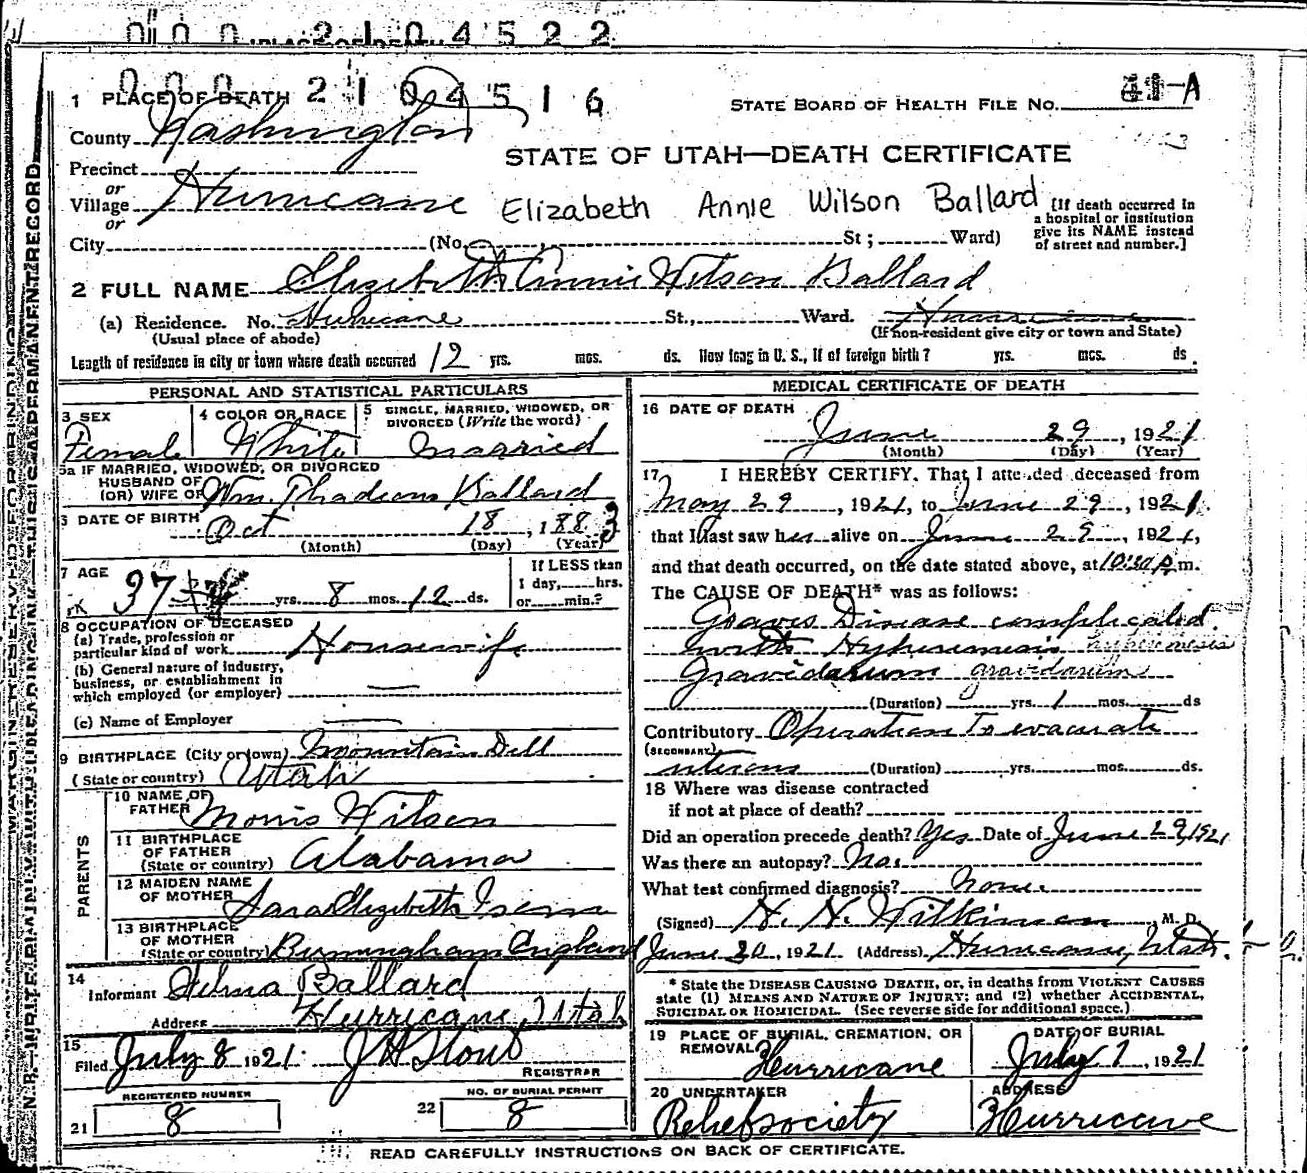 000 2104522
000 2104516
1 PLACE OF DEATH
STATE BOARD OF HEALTH FILE NO. 41-A
County Washington
STATE OF UTAH—DEATH CERTIFICATE
Precinct
or
Village Hurricane
or
Elizabeth Annie Wilson Ballard
[If death occurred in
a hospital or institution
give its NAME instead
of street and number.]
City (No. St; Ward)
2 FULL NAME Elizabeth Annie Wilson Ballard
(a) Residence. No. Hurricane St., Ward. Hurricane
(Usual place of abode) (If non-resident give city or town and State)
Length of residence in city or town where death occurred 12 yrs. mos. ds. How long in U. S., if of foreign birth? yrs. mos. ds.
PERSONAL AND STATISTICAL PARTICULARS
3 SEX
Female
4 COLOR OR RACE
White
5 SINGLE, MARRIED, WIDOWED, OR
DIVORCED (Write the word)
married
5a IF MARRIED, WIDOWED, OR DIVORCED
HUSBAND OF
(OR) WIFE OF Wm. Thadeous Ballard
6 DATE OF BIRTH
Oct 18, 1883
(Month) (Day) (Year)
7 AGE
37 yrs. 8 mos. 12 ds.
If LESS than
1 day, hrs.
or min.?
8 OCCUPATION OF DECEASED
(a) Trade, profession or
particular kind of work Housewife
(b) General nature of industry,
business, or establishment in
which employed (or employer)
(c) Name of Employer
9 BIRTHPLACE (City or town) Mountain Dell
(State or country) Utah
PARENTS
10 NAME OF
FATHER Morris Wilson
11 BIRTHPLACE
OF FATHER
(State or country) Alabama
12 MAIDEN NAME
OF MOTHER Sarah Elizabeth Isom
13 BIRTHPLACE
OF MOTHER
(State or country) Birmingham England
14
Informant Ballard
Address Hurricane, Utah
15
Filed July 8 1921 J H Stout
REGISTRAR
REGISTERED NUMBER
21 8
NO. OF BURIAL PERMIT
22 8
MEDICAL CERTIFICATE OF DEATH
16 DATE OF DEATH
June 29, 1921
(Month) (Day) (Year)
17 I HEREBY CERTIFY, That I attended deceased from
May 29, 1921, to June 29, 1921.
that I last saw her alive on June 29, 1921,
and that death occurred, on the date stated above, at 10:30 p.m.
The CAUSE OF DEATH* was as follows:
Graves Disease complicated
with Hyperemesis hyperemesis
Gravidarum gravidarum
(Duration) yrs. 1 mos. ds
Contributory Operation to evacuate
(SECONDARY)
uterous (Duration) yrs. mos. ds.
18 Where was disease contracted
if not at place of death?
Did an operation precede death? Yes Date of June 29, 1921
Was there an autopsy? No.
What test confirmed diagnosis? None.
(Signed) H. H. Wilkinson, M. D.
June 30, 1921 (Address) Hurricane, Utah.
* State the DISEASE CAUSING DEATH, or, in deaths from VIOLENT CAUSES
state (1) MEANS AND NATURE OF INJURY; and (2) whether ACCIDENTAL,
SUICIDAL OR HOMICIDAL. (See reverse side for additional space.)
19 PLACE OF BURIAL, CREMATION, OR
REMOVAL Hurricane
DATE OF BURIAL
July 1, 1921
20 UNDERTAKER
Relief society
ADDRESS
Hurricane
READ CAREFULLY INSTRUCTIONS ON BACK OF CERTIFICATE.
MARGIN RESERVED FOR BINDING
N. B.—WRITE PLAINLY, WITH UNFADING INK—THIS IS A PERMANENT RECORD